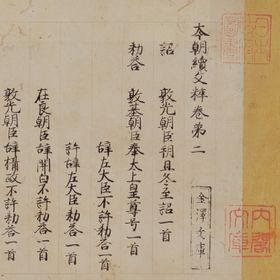 本朝續文粹卷第二
詔　敦光朝臣朔旦冬至詔一首
勅答　敦基朝臣奉太上皇尊号一首
辞左大臣不許勅答一首
許辞左大臣勅答一首
在良朝臣辞関白不許勅答一首
敦光朝臣辞攝政不許勅答一首
金澤文庫
内閣文庫